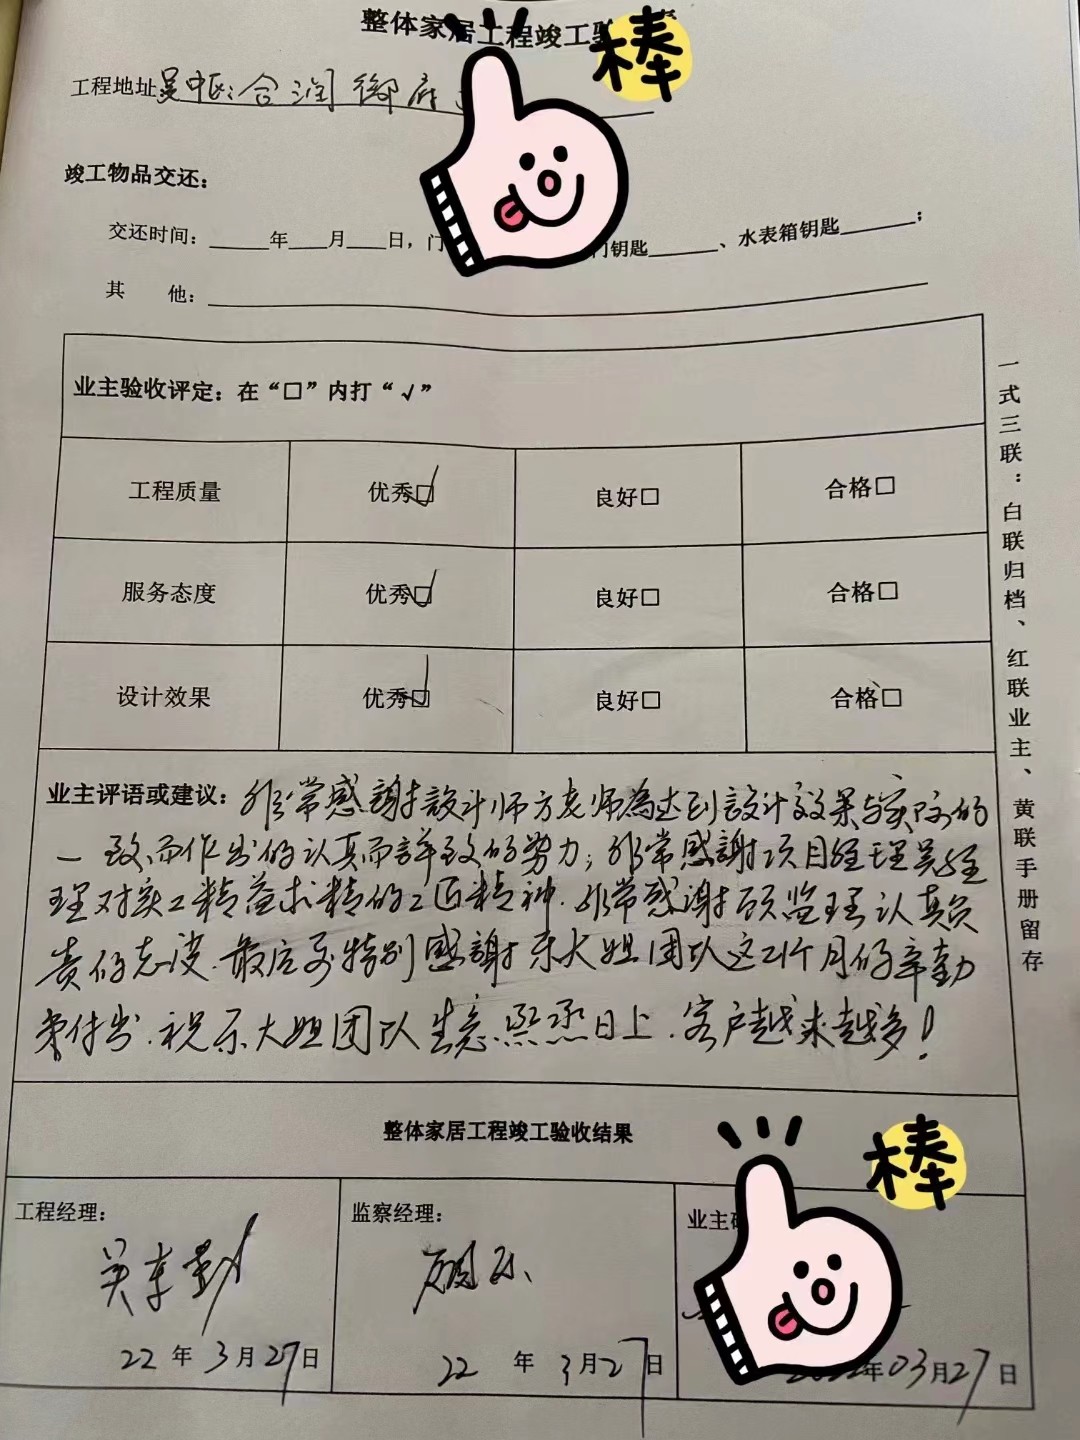 整体家居工程竣工验
棒
工程地址 吴中区:合润御府
竣工物品交还：
交还时间：______年___月___日，门 门钥匙______、水表箱钥匙______；
其 他：
业主验收评定：在“□”内打“√”
工程质量 优秀☑ 良好□ 合格□
服务态度 优秀☑ 良好□ 合格□
设计效果 优秀☑ 良好□ 合格□
业主评语或建议：非常感謝設计师方老师為达到設计效果与实际的
一致而作出的认真而詳致的努力；非常感謝项目经理吴经
理对实工精益求精的工匠精神.非常感谢顾监理认真负
责的态度.最后要特别感謝乐大姐团队这2个月的辛勤
劳付出.祝乐大姐团队生意蒸蒸日上.客户越来越多！
一式三联：白联归档、红联业主、黄联手册留存
整体家居工程竣工验收结果
棒
工程经理： 监察经理： 业主
吴 顾
22年3月27日 22年3月27日 年03月27日